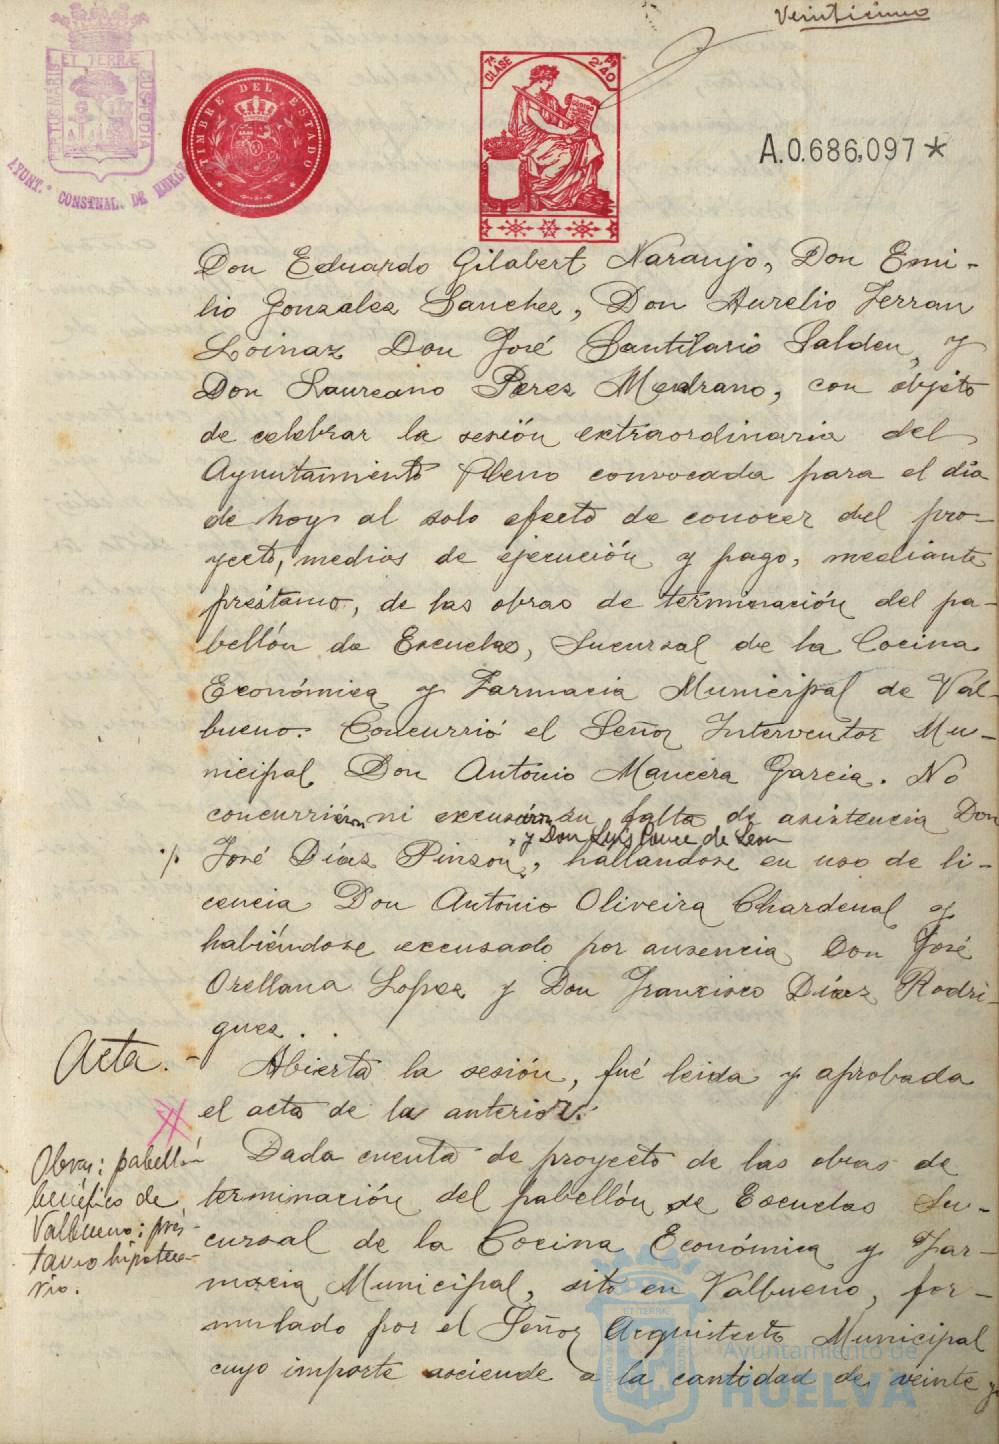 Veintiuno
PORTUS MARIS ET TERRÆ CUSTODIA
AYUNT.º CONSTNAL. DE HUELVA
TIMBRE DEL ESTADO
7ª CLASE
Pts 2'40
A.0.686,097*
Don Eduardo Gilabert Naranjo, Don Emi-
lio Gonzalez Sanchez, Don Aurelio Ferran
Loinaz Don José Santilario Salden, y
Don Laureano Perez Medrano, con objeto
de celebrar la sesión extraordinaria del
Ayuntamiento Pleno convocada para el día
de hoy al solo efecto de conocer del pro-
yecto, medios de ejecución y pago, mediante
préstamo, de las obras de terminación del pa-
bellón de Escuelas, Sucursal de la Cocina
Económica y Farmacia Municipal de Val-
bueno. Concurrió el Señor Interventor Mu-
nicipal Don Antonio Mancera Garcia. No
concurrieron ni excusaron su falta de asistencia Don
y Don Luis Ponce de Leon
José Díaz Pinzon, hallandose en uso de li-
cencia Don Antonio Oliveira Chardenal y
habiéndose excusado por ausencia Don José
Orellana Lopez y Don Francisco Díaz Rodri-
guez.
Acta.-
Abierta la sesión, fué leida y aprobada
el acta de la anterior.
Obras: pabellón
benéfico de
Valbueno; prés-
tamo hipoteca-
rio.
Dada cuenta de proyecto de las obras de
terminación del pabellón de Escuelas Su-
cursal de la Cocina Económica y Far-
macia Municipal, sito en Valbueno, for-
mulado por el Señor Arquitecto Municipal
cuyo importe asciende a la cantidad de veinte y
Ayuntamiento de
HUELVA